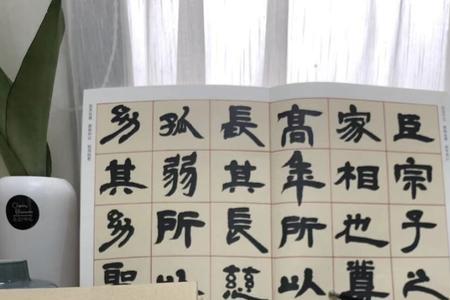 臣宗子之
家相也尊
高年所以
長其長慈
孤弱所以
幼其幼聖